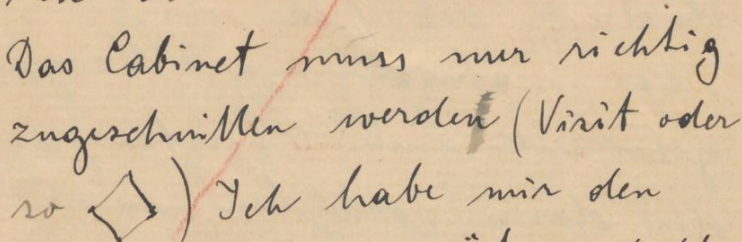 Das Cabinet muss nur richtig
zugeschnitten werden (Visit oder
so ◇) Ich habe mir den